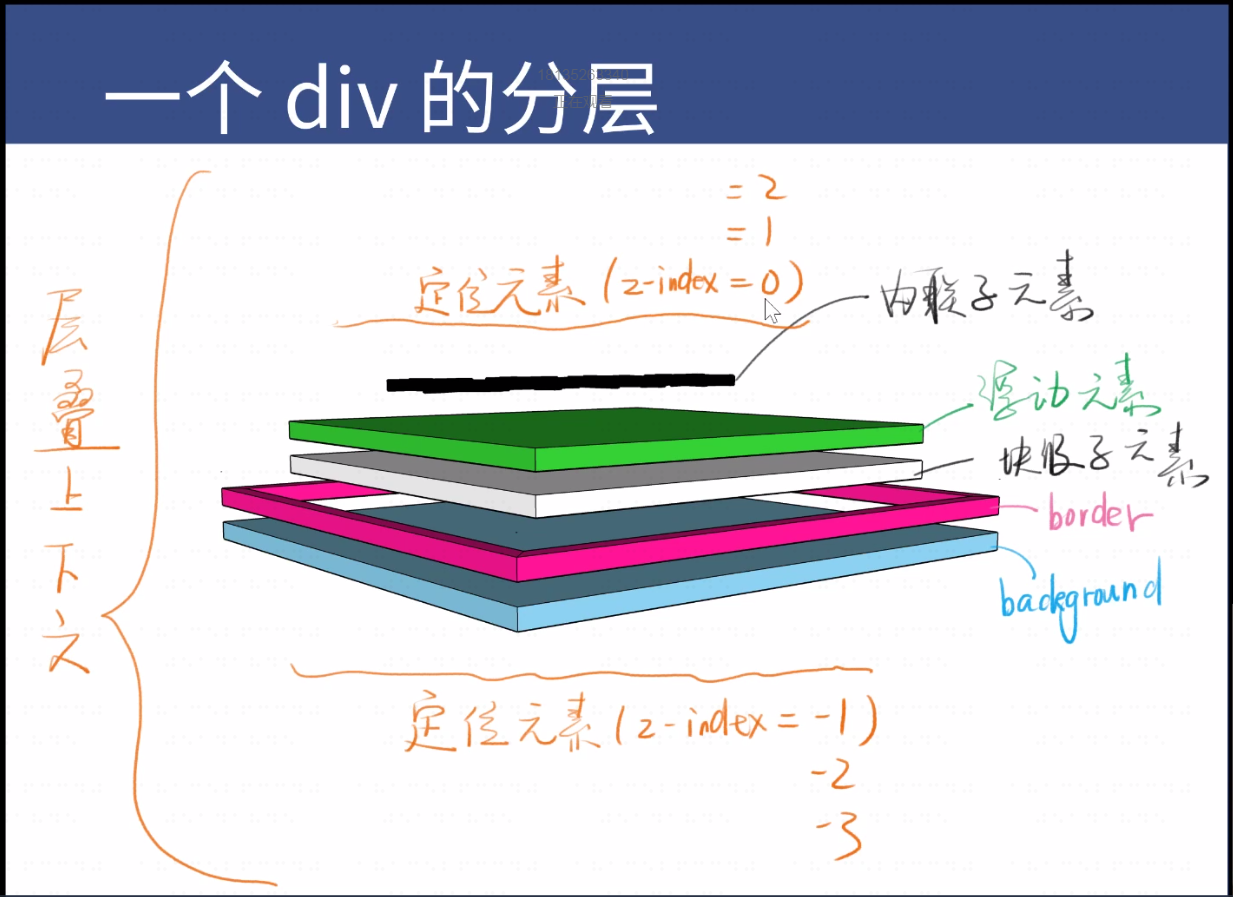 一个 div 的分层
正在观看
= 2
= 1
定位元素 (z-index = 0)
内联子元素
浮动元素
块级子元素
border
background
层叠上下文
定位元素 (z-index = -1)
-2
-3